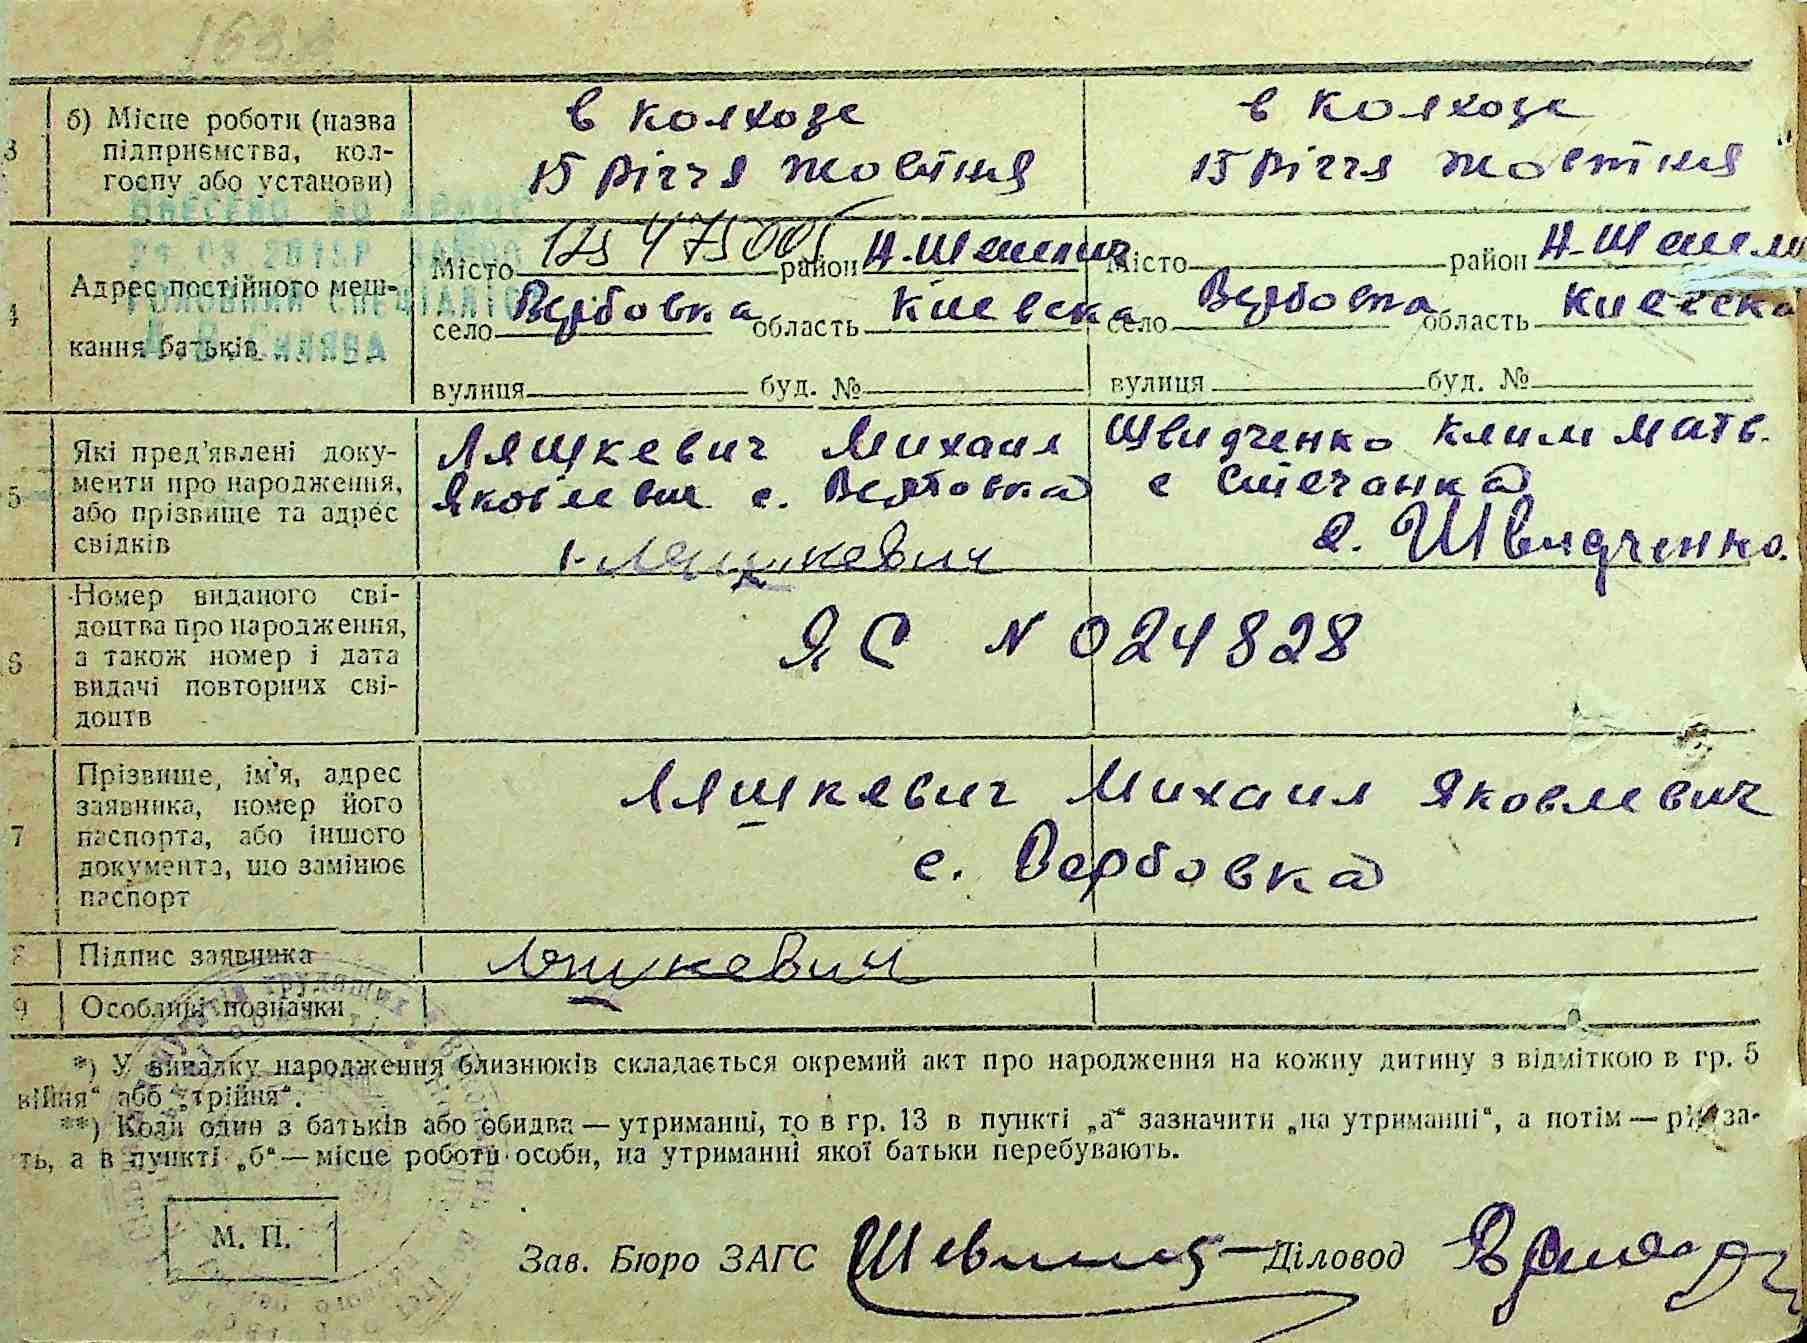 б) Місце роботи (назва
підприємства, кол-
госпу або установи)
в колхозе
15 річчя жовтня
в колхозе
15 річчя жовтня
4
Адрес постійного меш-
кання батьків
Місто район
село Вербовка область Киевска
вулиця буд. №
Місто район
село Вербовка область Киевска
вулиця буд. №
5
Які пред'явлені доку-
менти про народження,
або прізвище та адрес
свідків
Ляшкевич Михаил
Яковлевич с. Вербовка
Ляшкевич
Швидченко Клим Матв.
с
Швидченко
6
Номер виданого сві-
доцтва про народження,
а також номер і дата
видачі повторних сві-
доцтв
ЯС N 024828
7
Прізвище, ім'я, адрес
заявника, номер його
паспорта, або іншого
документа, що замінює
паспорт
Ляшкевич Михаил Яковлевич
с. Вербовка
8
Підпис заявника
Ляшкевич
9
Особливі позначки
*) У випадку народження близнюків складається окремий акт про народження на кожну дитину з відміткою в гр. 5
війня“ або „трійня“.
**) Коли один з батьків або обидва — утриманці, то в гр. 13 в пункті „а“ зазначити „на утриманні“, а потім —
ть, а в пункті „б“ — місце роботи особи, на утриманні якої батьки перебувають.
М. П.
Зав. Бюро ЗАГС
Діловод